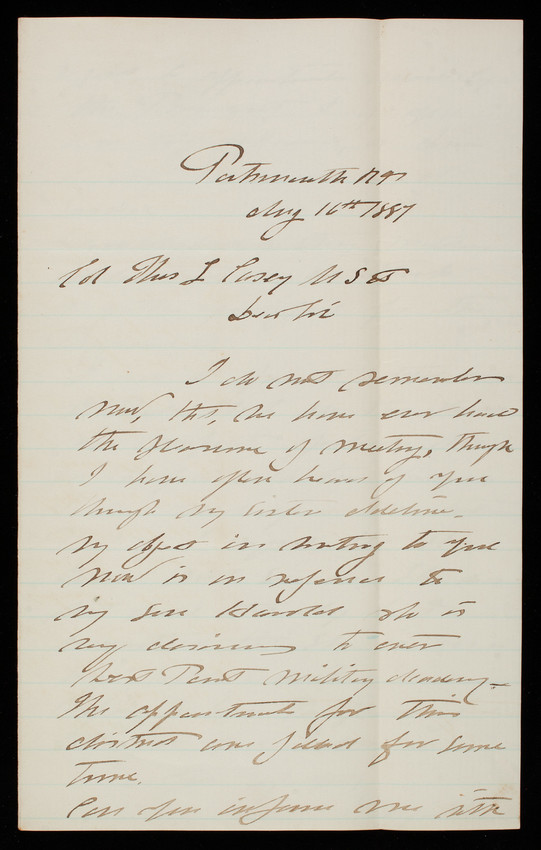 Portsmouth
Aug 16th 1887
Col Thos L Casey U S E
Dear Sir
I do not remember
now, tht, we have ever had
the pleasure of meeting, though
I have often heard of you
through my sister Adeline.
My object in writing to you
now is in reference to
my son Harold who is
very desirous to enter
West Point Military Academy.
The appointments for this
district are filled for some
time.
Can you inform me if the